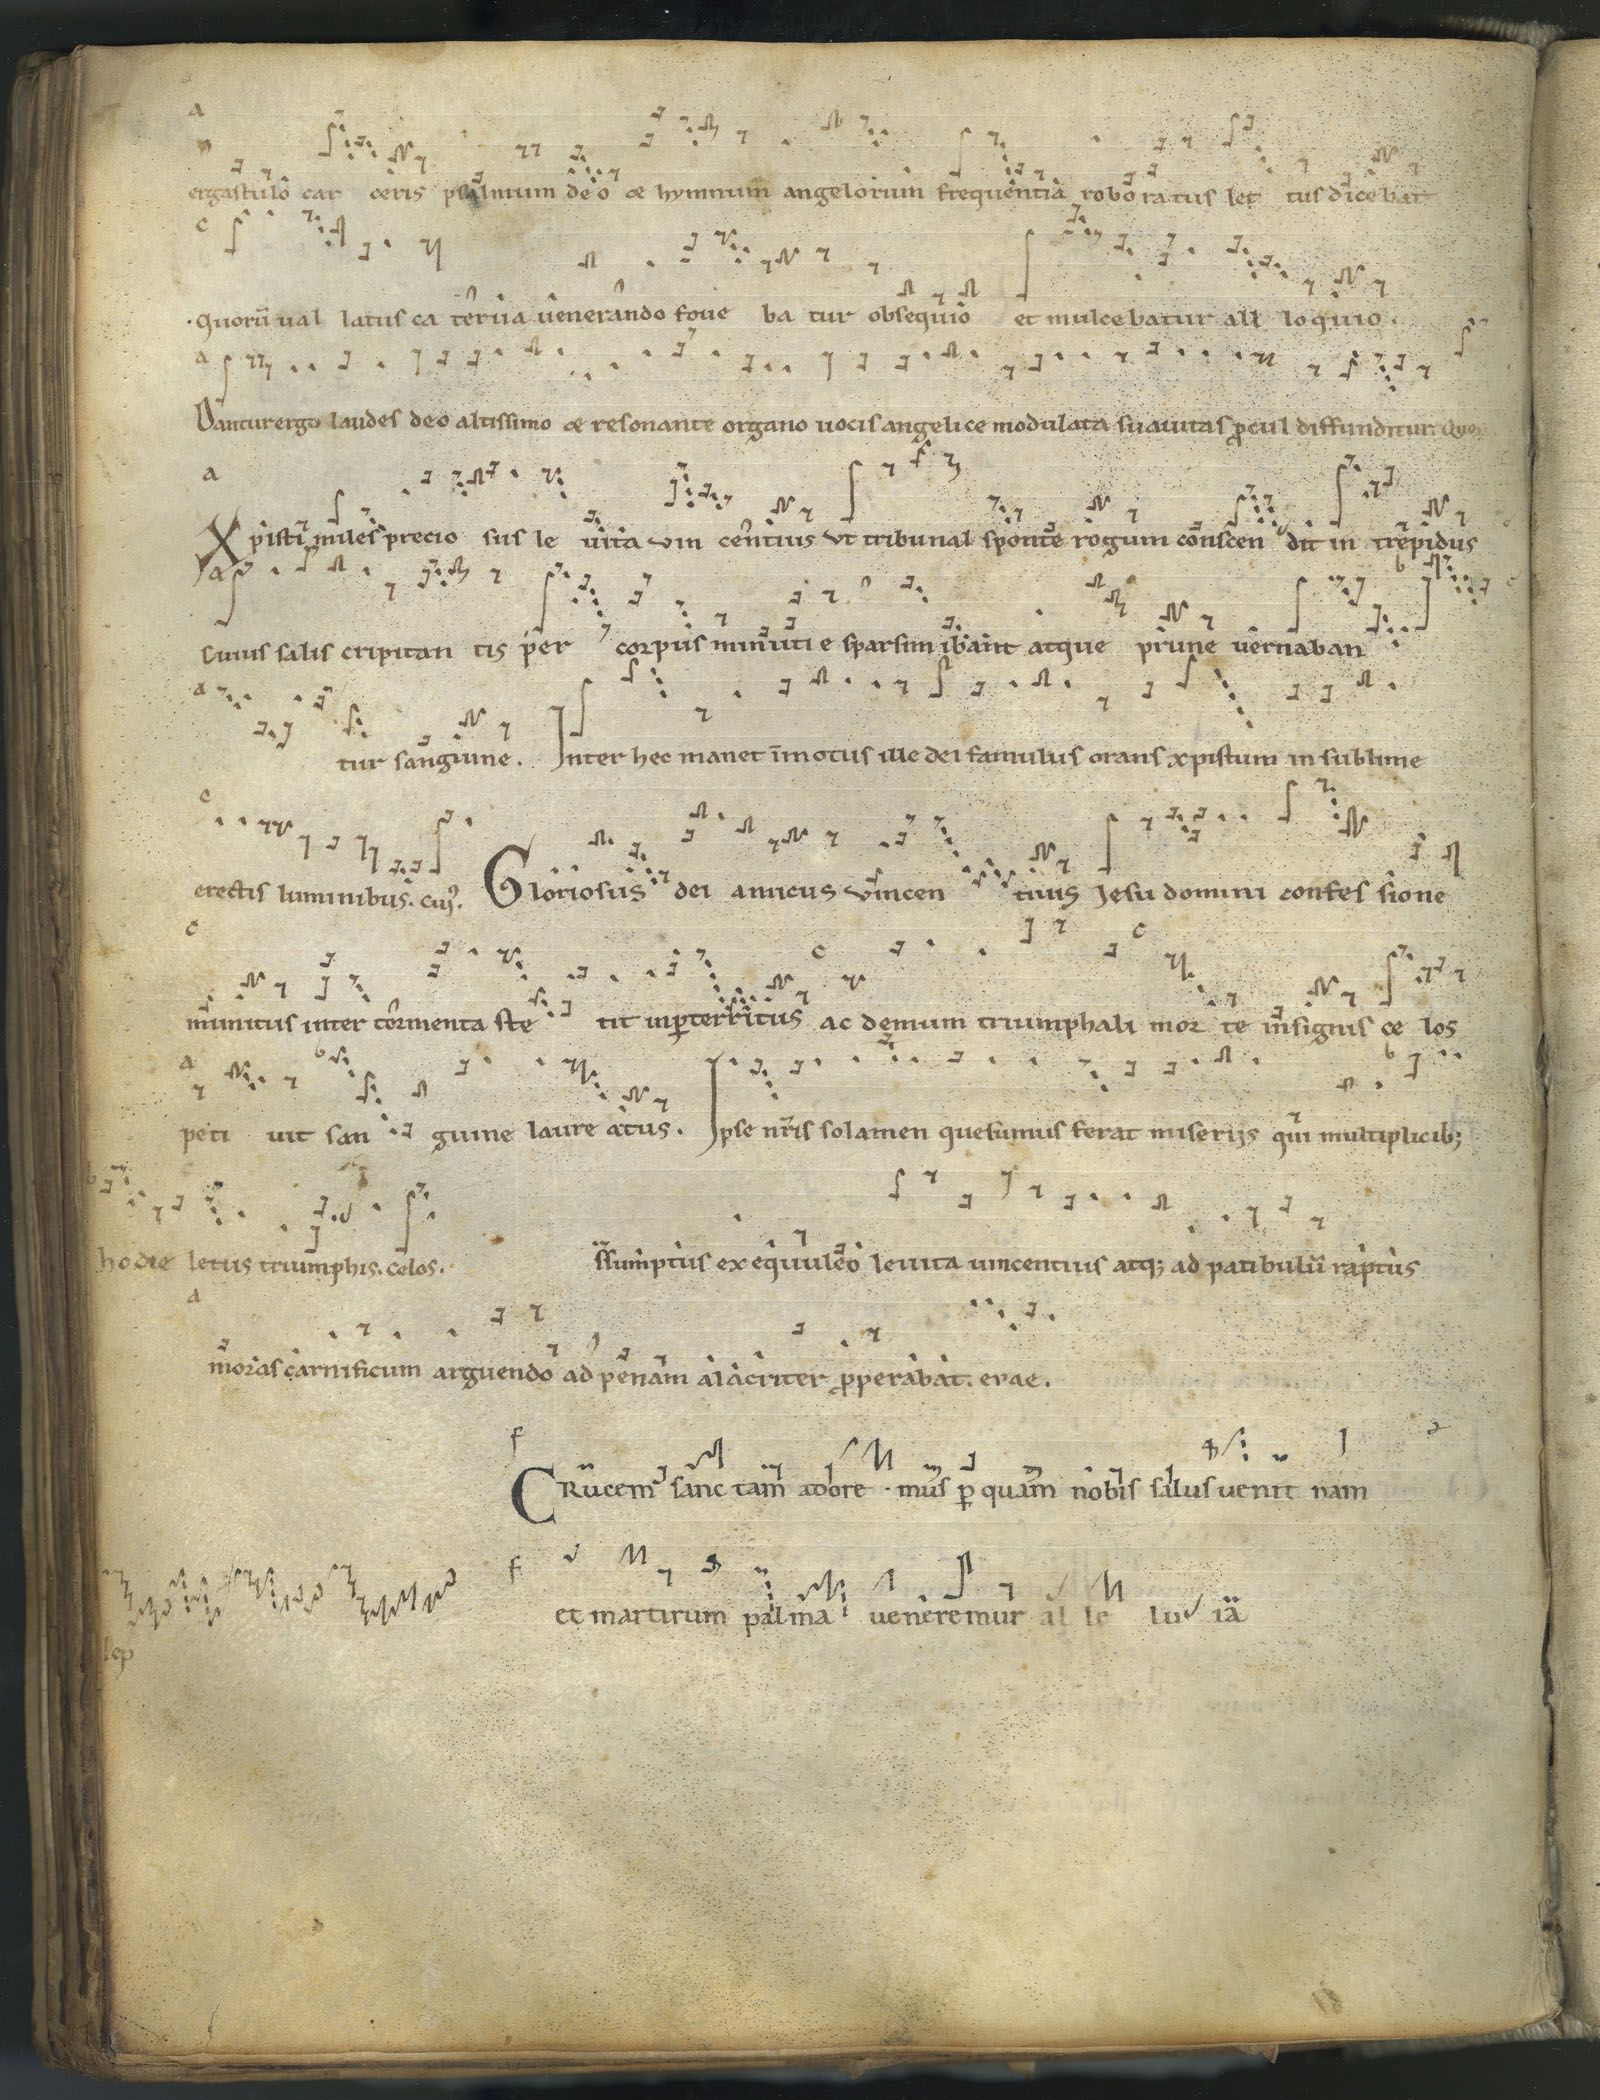 a
ergastulo car ceris psalmum deo & hymnum angelorum frequentia roboratus let tus dicebat
c
.quorū ual latus ca terua uenerando foue ba tur obsequio et mulcebatur all loquio.
a
Danturergo laudes deo altissimo & resonante organo uocis angelice modulata suauitas procul diffunditur. Quoꝝ
a
Xpisti miles precio sus le uita vin centius vt tribunal sponte rogum conscen dit in trepidus
a b
Cuius salis cripitan tis per corpus minuti e sparsim ibant atque prune uernaban
a
tur sanguine. Inter hec manet īmotus ille dei famulus orans xpistum in sublime
c
erectis luminibus. cuꝫ. Gloriosus dei amicus vincen tius Jesu domini confes sione
c c c
munitus inter tormenta ste tit inꝑterritus ac demum triumphali mor te insignis ce los
a b b
peti uit san guine laure atus. Ipse nr̄is solamen quesumus ferat miserijs qui multiplicibꝫ
b
hodie letus triumphis. celos. ssumptus ex equuleo leuita uincentius atqꝫ ad patibulū raptus
a
moras carnificum arguendo ad penam alacriter ꝓperabat. euae.
f
CRucem sanc tam adore . mus ꝑ quam nobis salus uenit nam
f
et martirum palma ueneremur al le lu ia